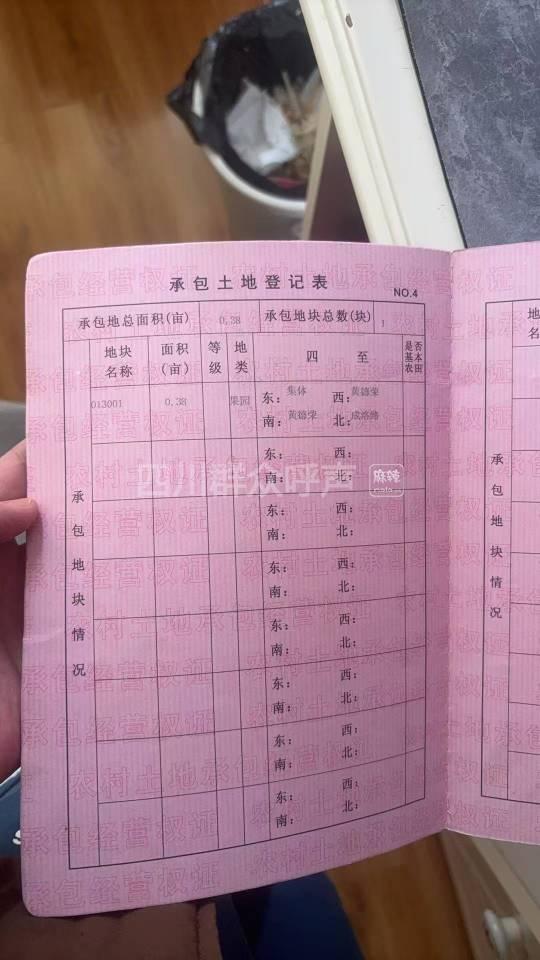 承包土地登记表
NO.4
承包地总面积(亩) 0.38 承包地块总数(块) 1
地块名称 面积(亩) 等级 地类 四至 是否基本农田
013001 0.38 果园 东：集体 西：黄德荣
南：黄德荣 北：
东： 西：
南： 北：
东： 西：
南： 北：
东： 西：
南： 北：
东： 西：
南： 北：
东： 西：
南： 北：
东： 西：
南： 北：
东： 西：
南： 北：
承包地块情况
承包地块情况
四川群众呼声
麻辣
农村土地承包经营权证